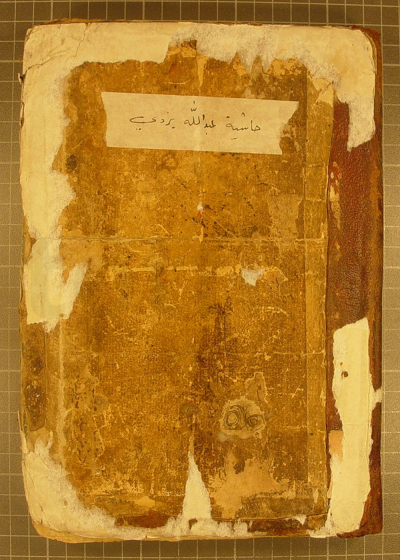 حاشية عبدالله يزدي